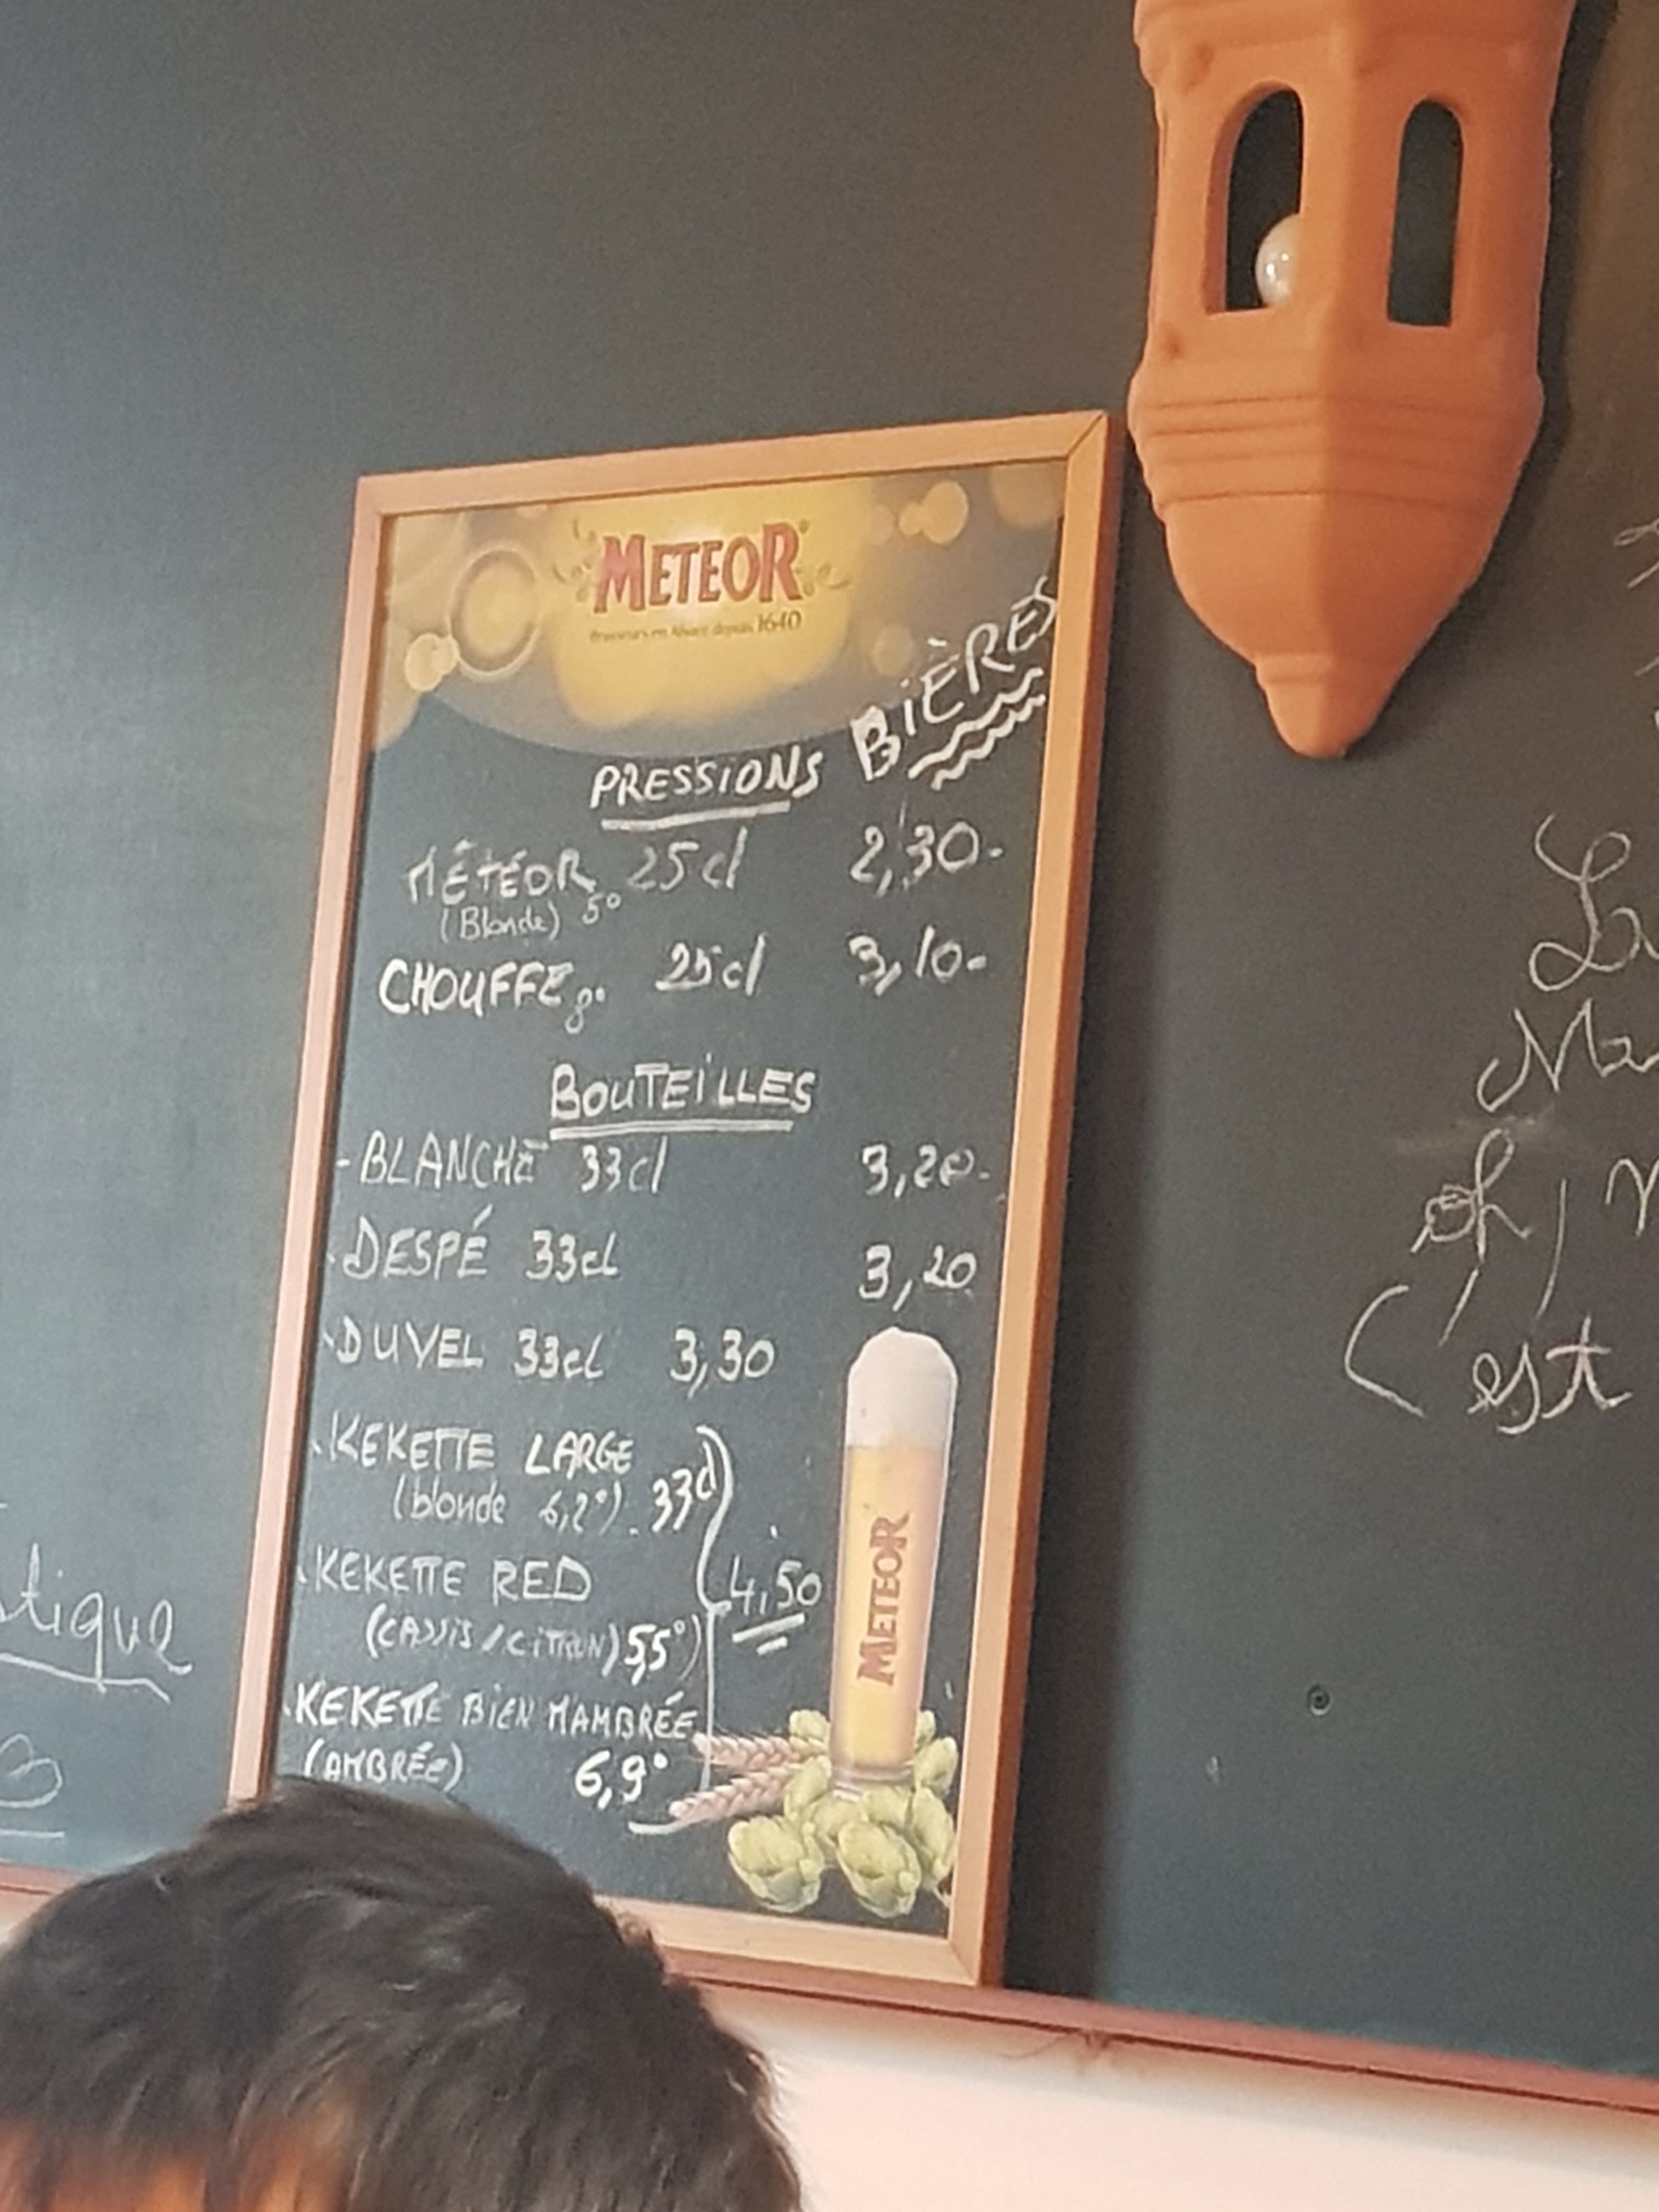 METEOR
Brasseurs en Alsace depuis 1640
BIÈRES
PRESSIONS
MÉTÉOR 25cl 2,30-
(Blonde) 5°
CHOUFFE 8° 25cl 3,10-
BOUTEILLES
- BLANCHE 33cl 3,20-
- DESPÉ 33cl 3,20
- DUVEL 33cl 3,30
- KEKETTE LARGE
(blonde 6,2°). 33cl
- KEKETTE RED 4,50
(CASSIS/CITRON) 5,5°)
- KEKETTE BIEN MAMBRÉE
(AMBRÉE) 6,9°
METEOR
tique
oh,
C'est